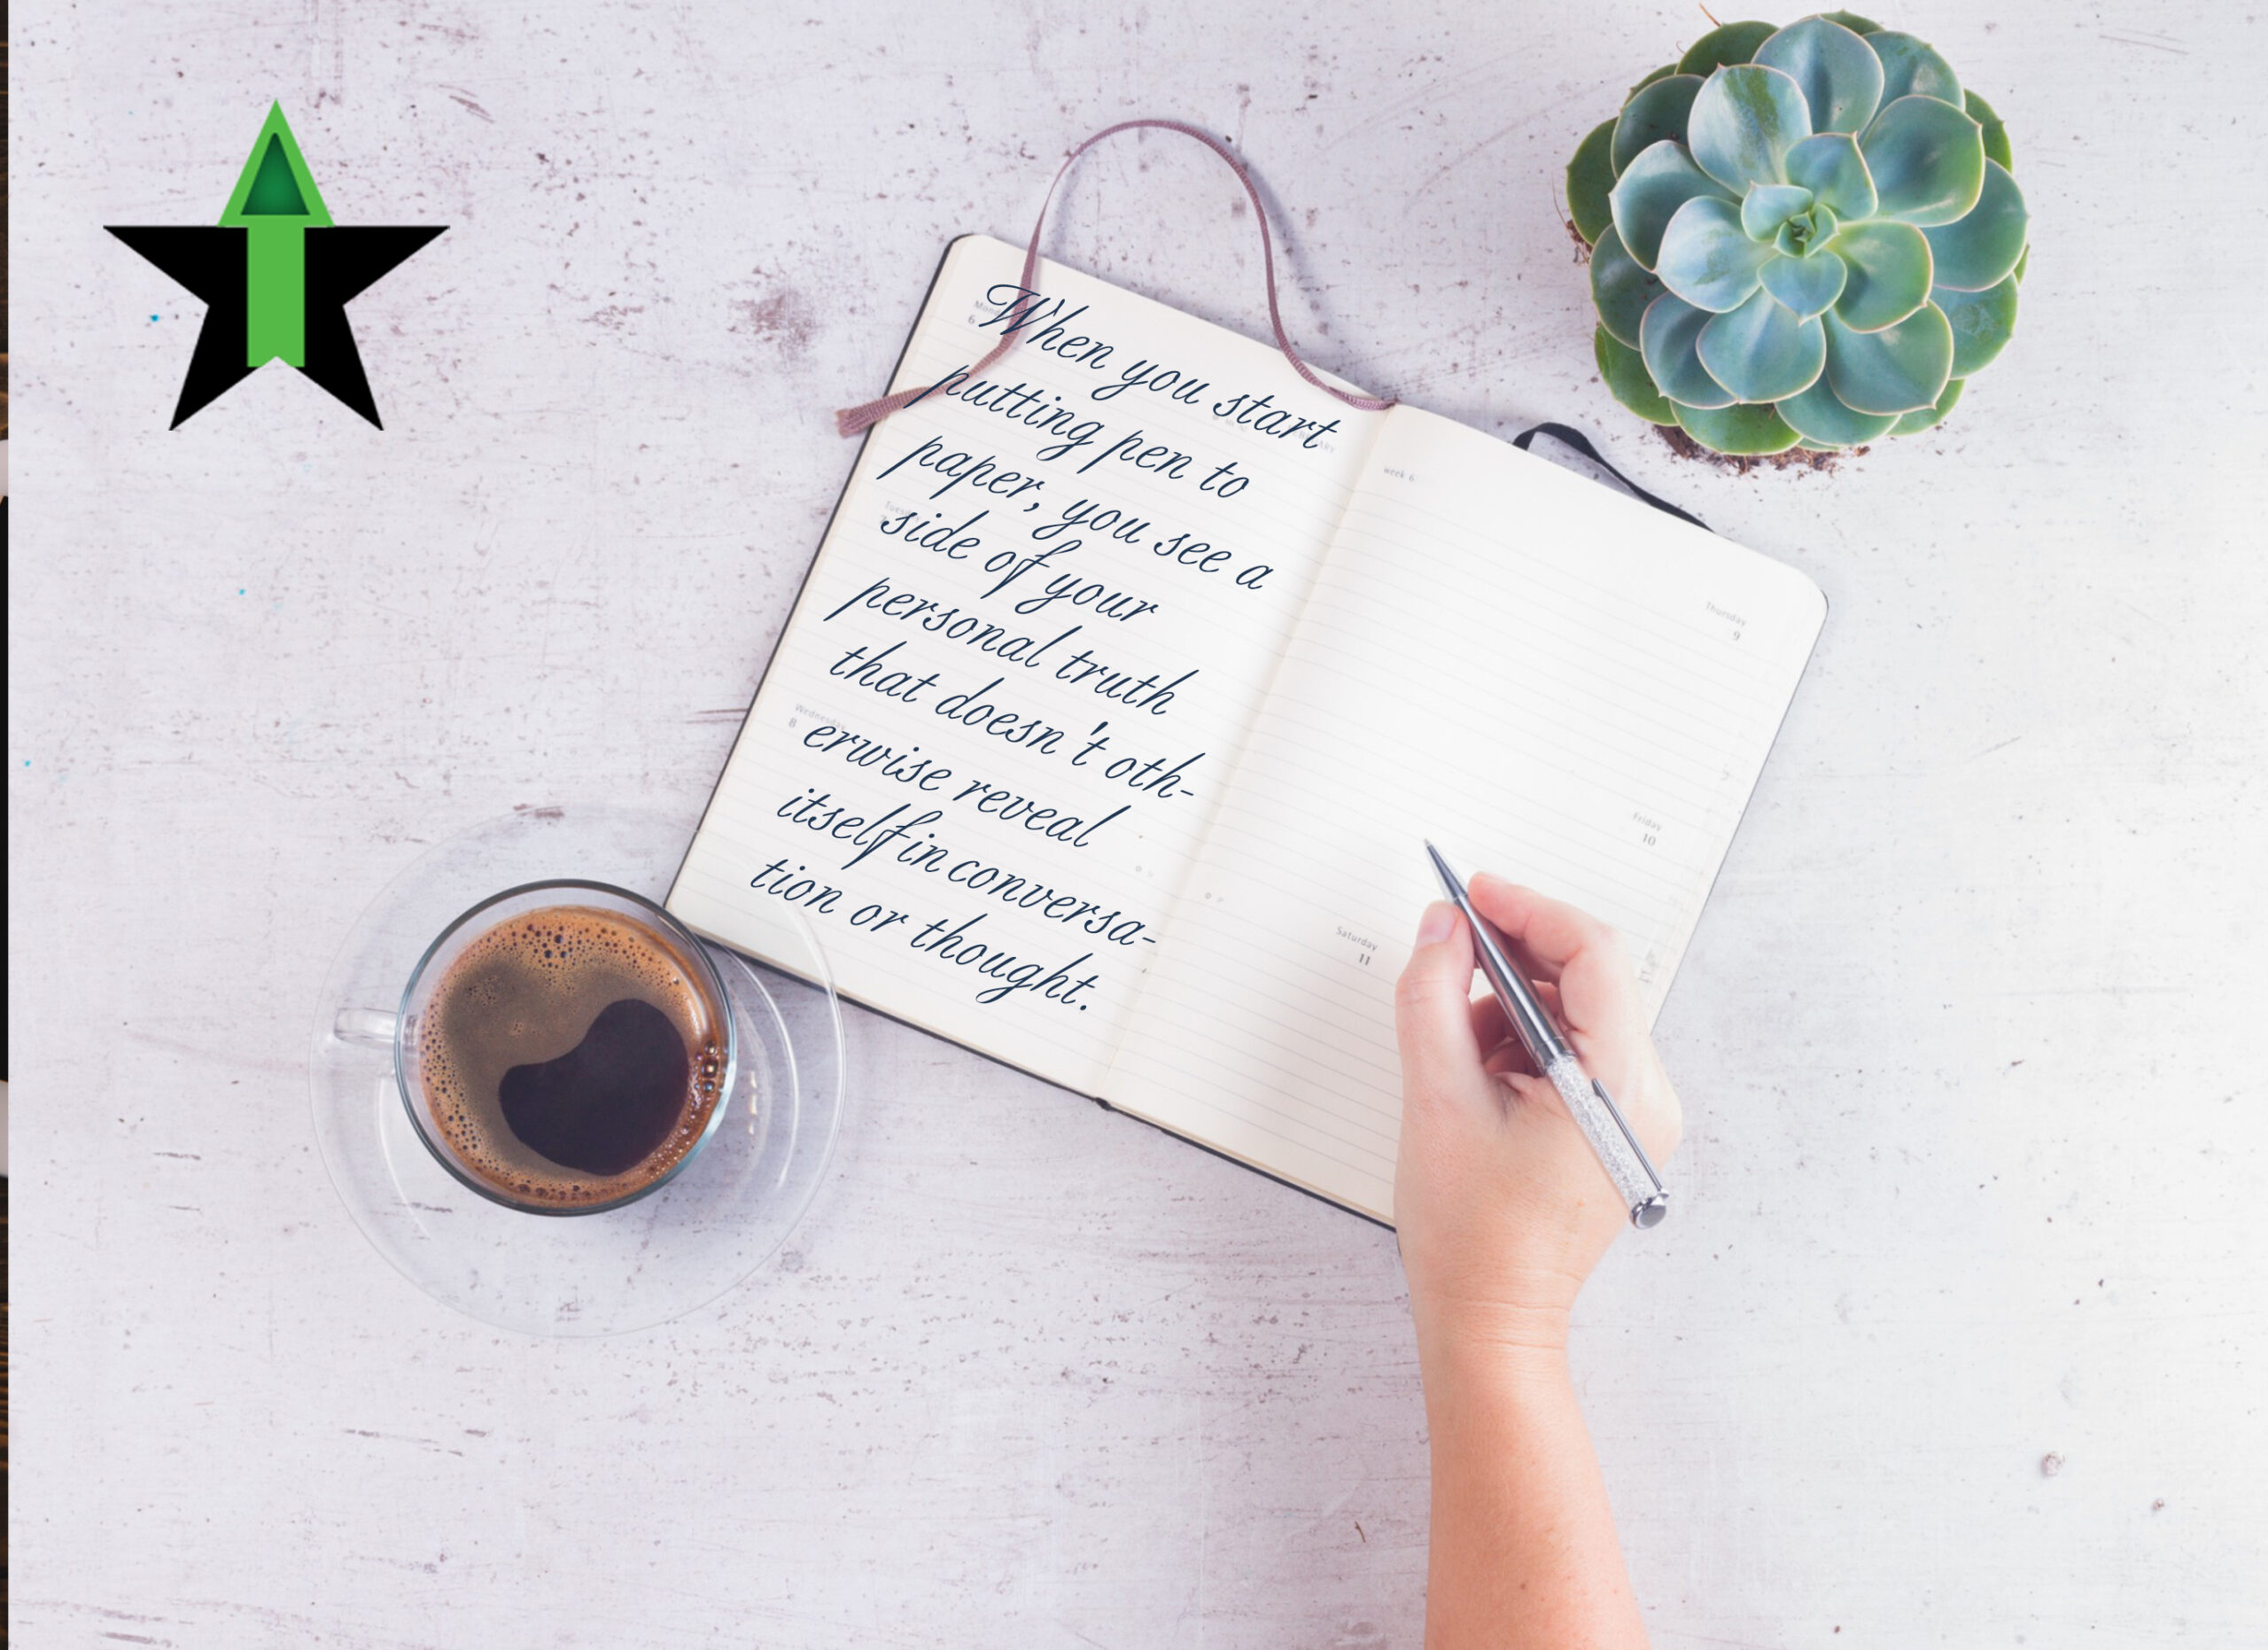 When you start
putting pen to
paper, you see a
side of your
personal truth
that doesn't oth-
erwise reveal
itself in conversa-
tion or thought.
6
Tuesday
Wednesday
8
week 6
Thursday
9
Friday
10
Saturday
11